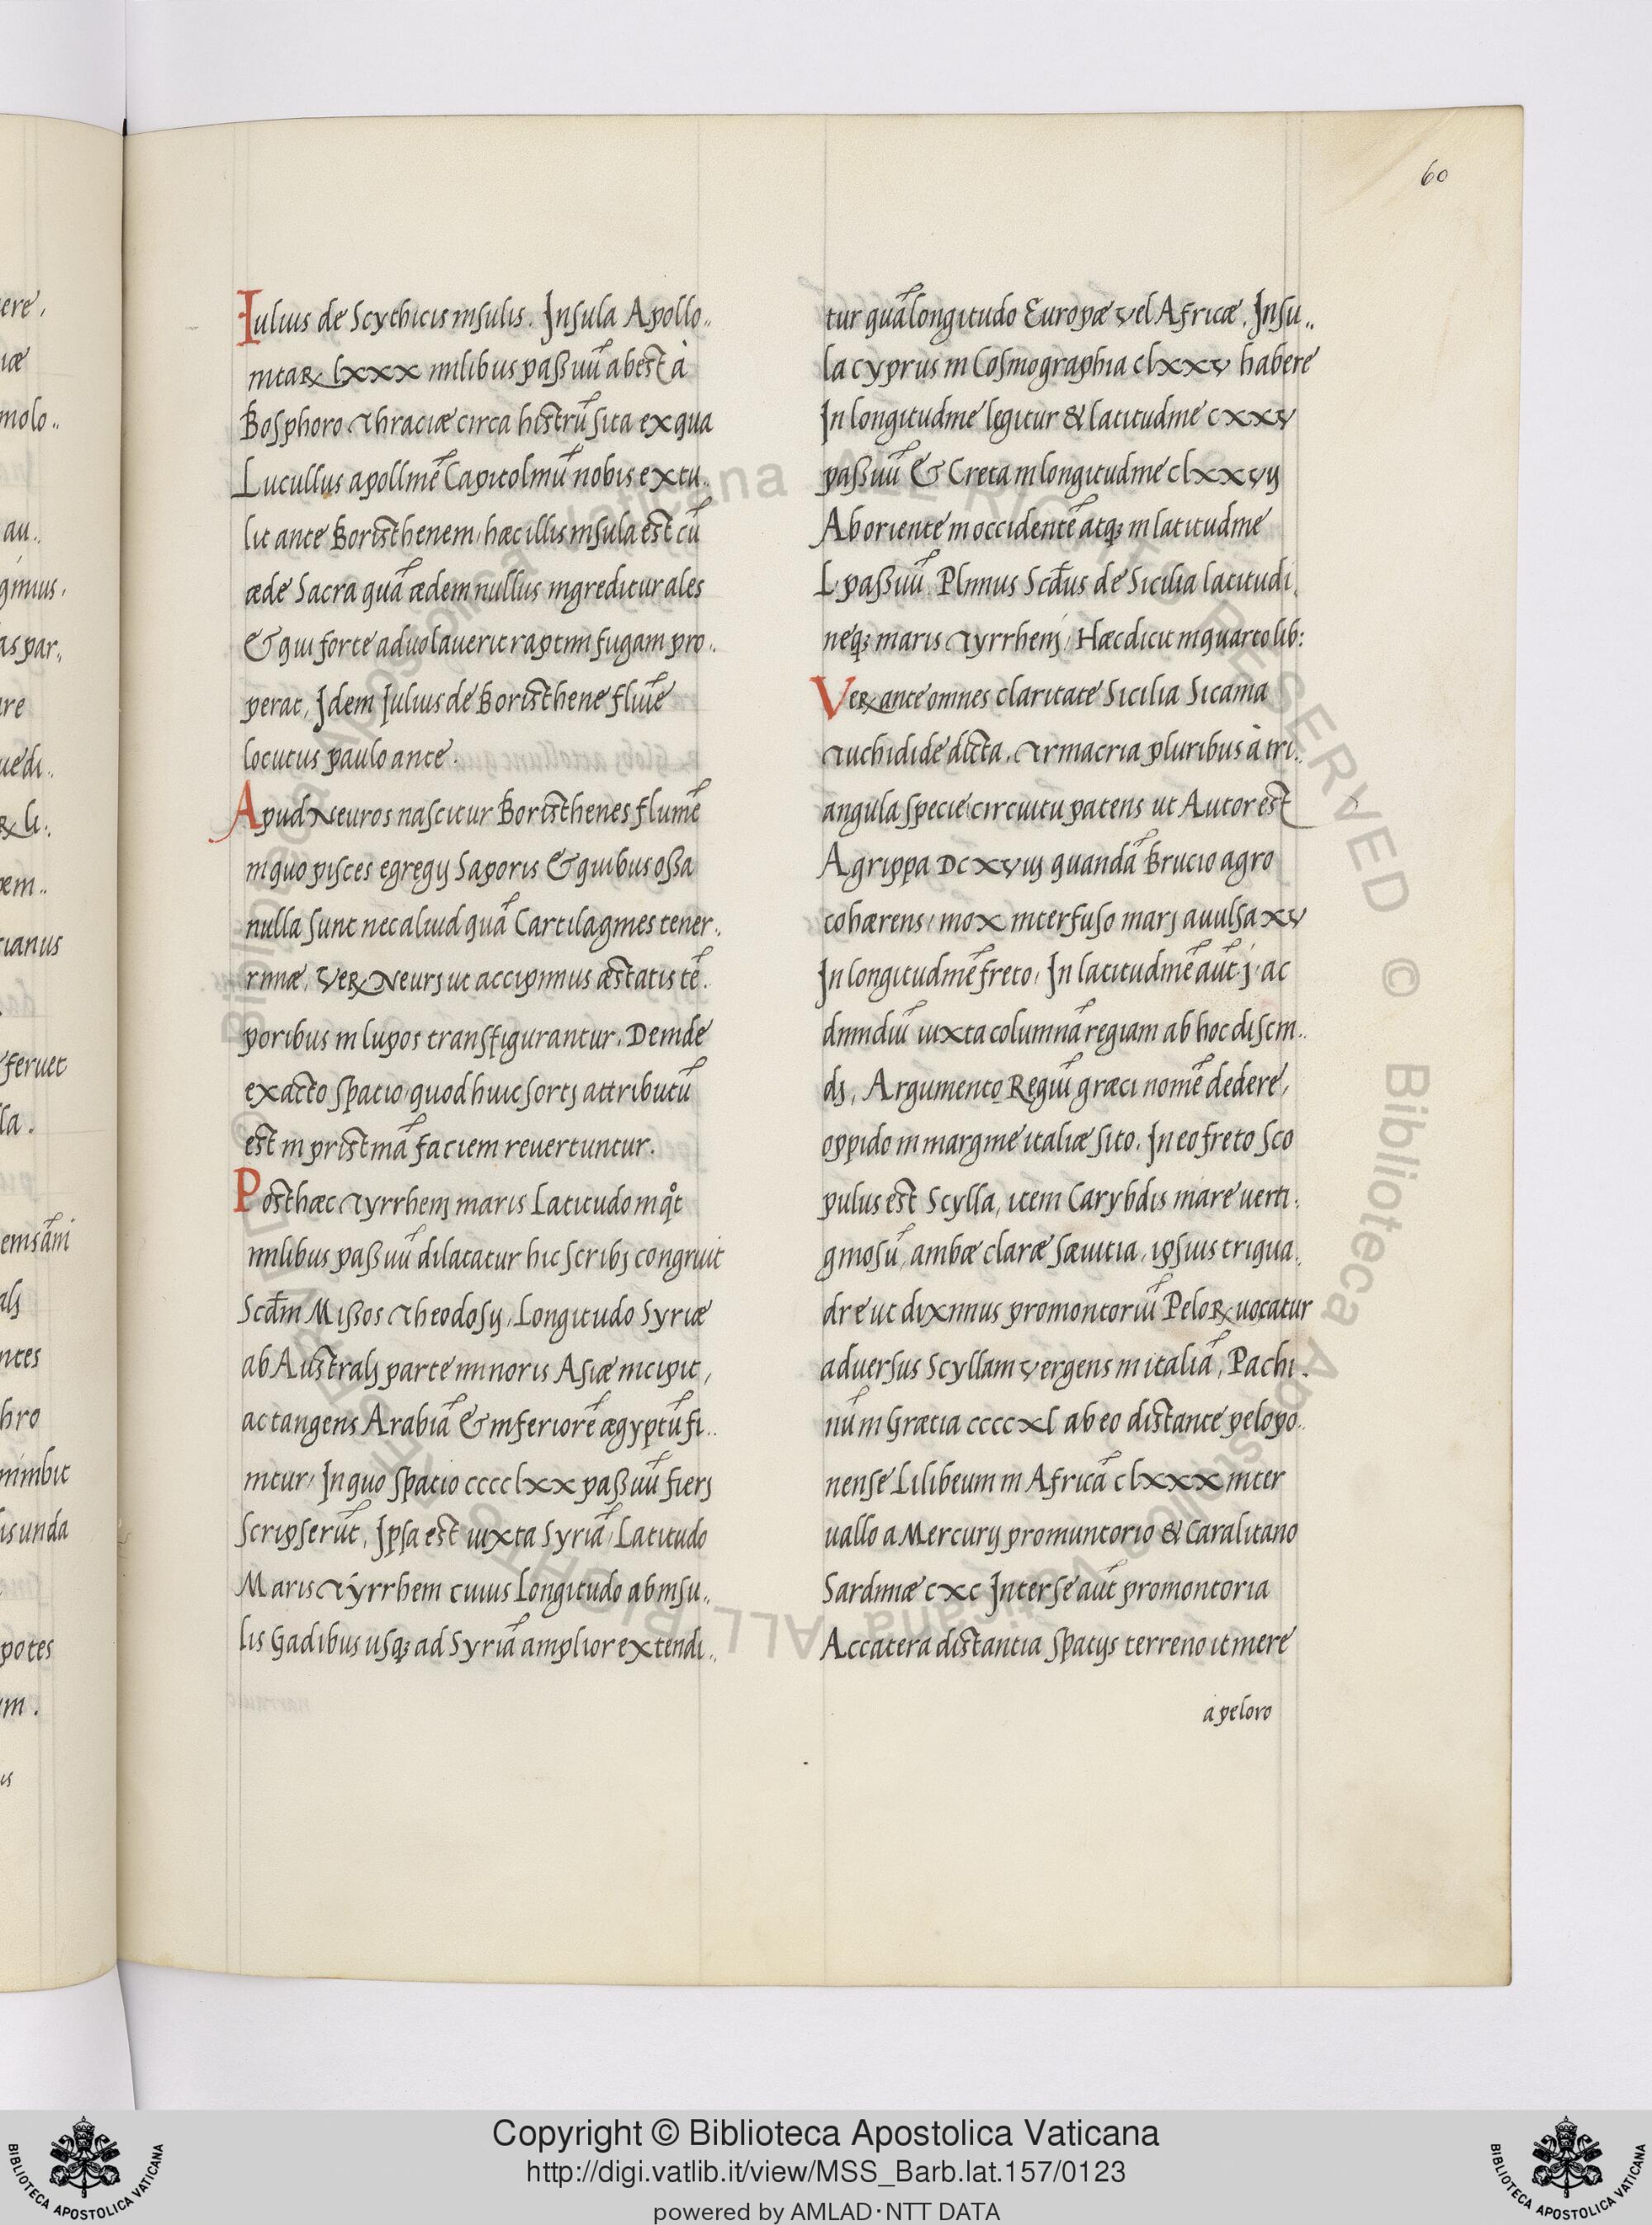 60
Iulius de Scythicis insulis. Insula Apollo..
nitaꝝ lxxx milibus paßuū abest à
Bosphoro Thraciæ circa histrū sita ex qua
Lucullus apollinē Capitolinū nobis extu..
lit ante Boristhenem, hæc illis insula est cū
æde Sacra quā ædem nullus ingreditur ales
& qui forte aduolauerit raptim fugam pro..
perat, Idem Iulius de Boristhene fluīe
locutus paulo ante.
Apud Neuros nascitur Boristhenes flumē
in quo pisces egregij Saporis & quibus oßa
nulla sunt nec aliud quā Cartilagines tener..
rimæ, Veꝝ Neurj ut accipimus æstatis tē.
poribus in lupos transfigurantur. Deinde
exacto spatio quod huic sortj attributū
est in pristinā faciem reuertuntur.
Posthæc Tyrrhenj maris Latitudo in qͦt
milibus paßuū dilatatur hic scribj congruit
Scd̄m Mißos Theodosij, Longitudo Syriæ
ab Australj parte minoris Asiæ incipit,
ac tangens Arabiā & inferiorē ægyptū fi..
nitur, In quo spatio cccclxx paßuū fierj
Scripserūt, Ipsa est iuxta Syriā, Latitudo
Maris Tyrrheni cuius Longitudo ab insu..
lis Gadibus usqꝫ ad Syriā amplior extendi..
tur quā longitudo Europæ vel Africæ. Insu..
la cyprus in Cosmographia clxxv habere
In longitudine legitur & latitudine cxxv
paßuū & Creta in longitudine clxxvij
Ab oriente in occidentē atqꝫ in latitudine
L paßuū. Plinius Scd̄us de Sicilia latitudi.
neqꝫ maris Tyrrhenj, Hæc dicit in quarto lib:
Veꝝ ante omnes claritate Sicilia Sicania
Tuchidide dicta, Trinacria pluribus à tri..
angula specie circuitu patens ut Autor est
Agrippa DCxviij quandā Brucio agro
cohærens, mox interfuso marj auulsa xv
In longitudinē freto, In latitudinē aūt j. ac
dimidiū iuxta columnā regiam ab hoc discin..
dj, Argumento Regiū græci nomē dedere,
oppido in margine italiæ sito. In eo freto sco
pulus est Scylla, item Carybdis mare uerti.
ginosū, ambæ claræ sæuitia, ipsius triqua.
dre ut diximus promontoriū Peloꝝ uocatur
aduersus Scyllam vergens in italiā, Pachi.
nū in Grætia ccccxl ab eo distante pelopo..
nense Lilibeum in Africā clxxx inter
uallo a Mercurij promuntorio & Caralitano
Sardiniæ cxc Inter se aūt promontoria
Ac cætera distantia spatijs terreno itinere
a peloro
Copyright © Biblioteca Apostolica Vaticana
http://digi.vatlib.it/view/MSS_Barb.lat.157/0123
powered by AMLAD·NTT DATA